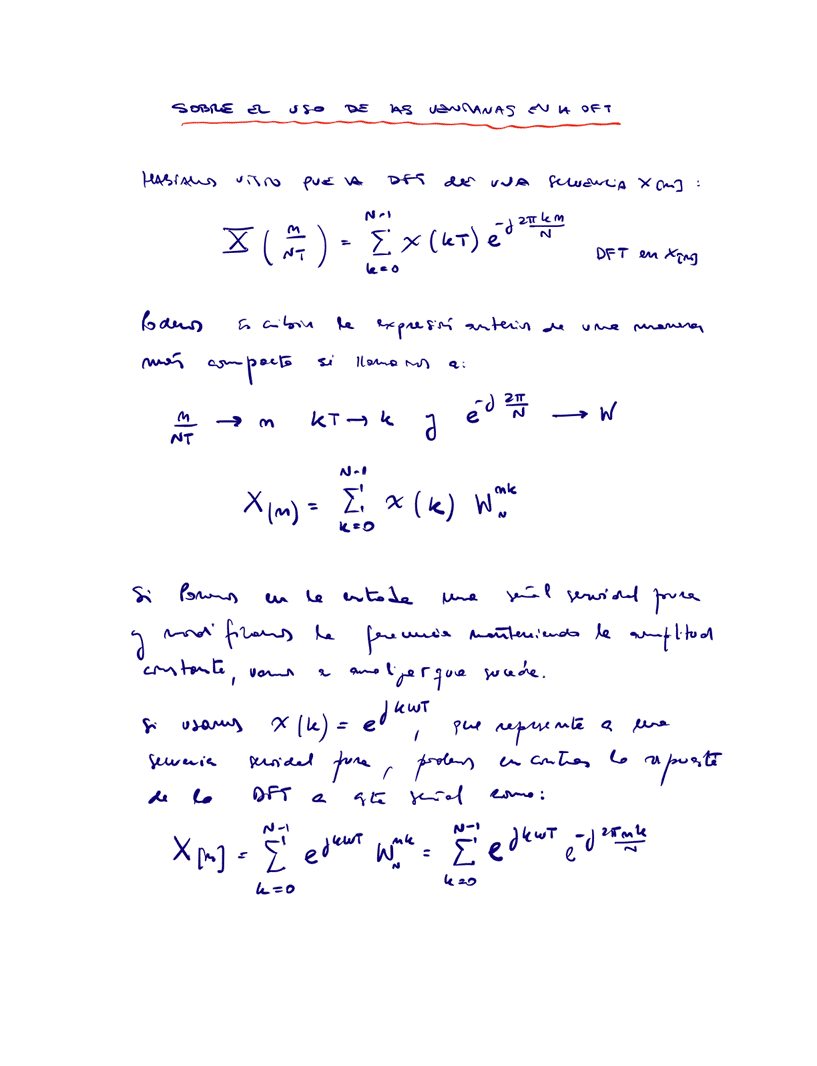 SOBRE EL USO DE LAS VENTANAS EN LA DFT
HABIAMOS VISTO QUE LA DFT DE UNA SECUENCIA X[m] :
X ( m/NT ) = Σ_{k=0}^{N-1} x (kT) e^{-j 2πkm/N}
DFT en X[m]
Podemos escribir la expresión anterior de una manera
más compacta si llamamos a:
m/NT → m kT → k y e^{-j 2π/N} → W
X(m) = Σ_{k=0}^{N-1} x (k) W_N^{mk}
Si Ponemos en la entrada una señal senoidal pura
y modificamos la frecuencia manteniendo la amplitud
constante, vamos a analizar que sucede.
Si usamos x (k) = e^{jkwT}, que representa a una
secuencia senoidal pura, podemos encontrar la respuesta
de la DFT a esta señal como:
X[m] = Σ_{k=0}^{N-1} e^{jkwT} W_N^{mk} = Σ_{k=0}^{N-1} e^{jkwT} e^{-j 2πmk/N}